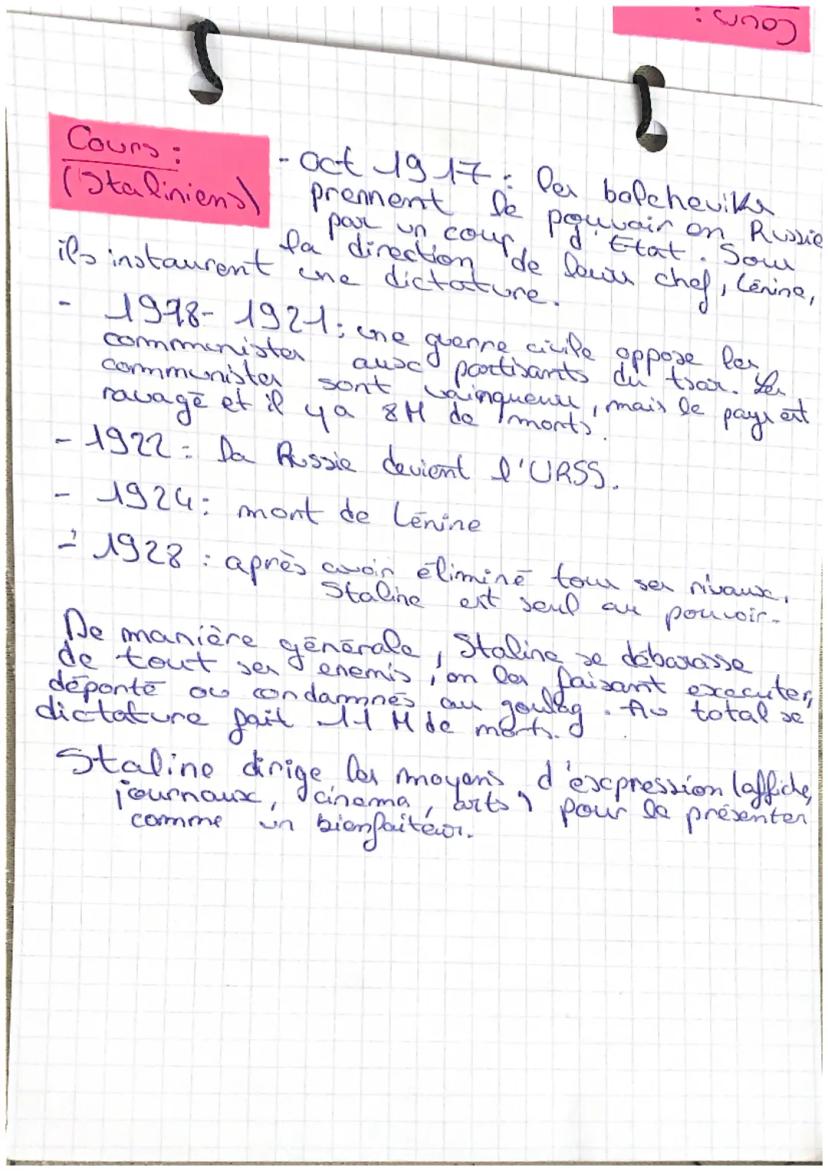 Cours :
Cours :
(Staliniens)
- oct 1917 : les bolcheviks
prennent le pouvoir en Russie
par un coup d'Etat. Sous
la direction de leurs chef, Lénine,
ils instaurent une dictature.
- 1918 - 1921 : une guerre civile oppose les
communistes aux partisants du tsar. Les
communistes sont vainqueurs, mais le pays est
ravagé et il y a 8M de morts.
- 1922 = La Russie devient l'URSS.
- 1924 : mort de Lénine
- 1928 : après avoir éliminé tous ses rivaux,
Staline est seul au pouvoir.
De manière générale, Staline se débarasse
de tout ses enemis, en les faisant executer,
déporté ou condamnés au goulag. Au total se
dictature fait 11 M de morts.
Staline dirige les moyens d'expression (affiche,
journaux, cinema, arts) pour le présenter
comme un bienfaiteur.